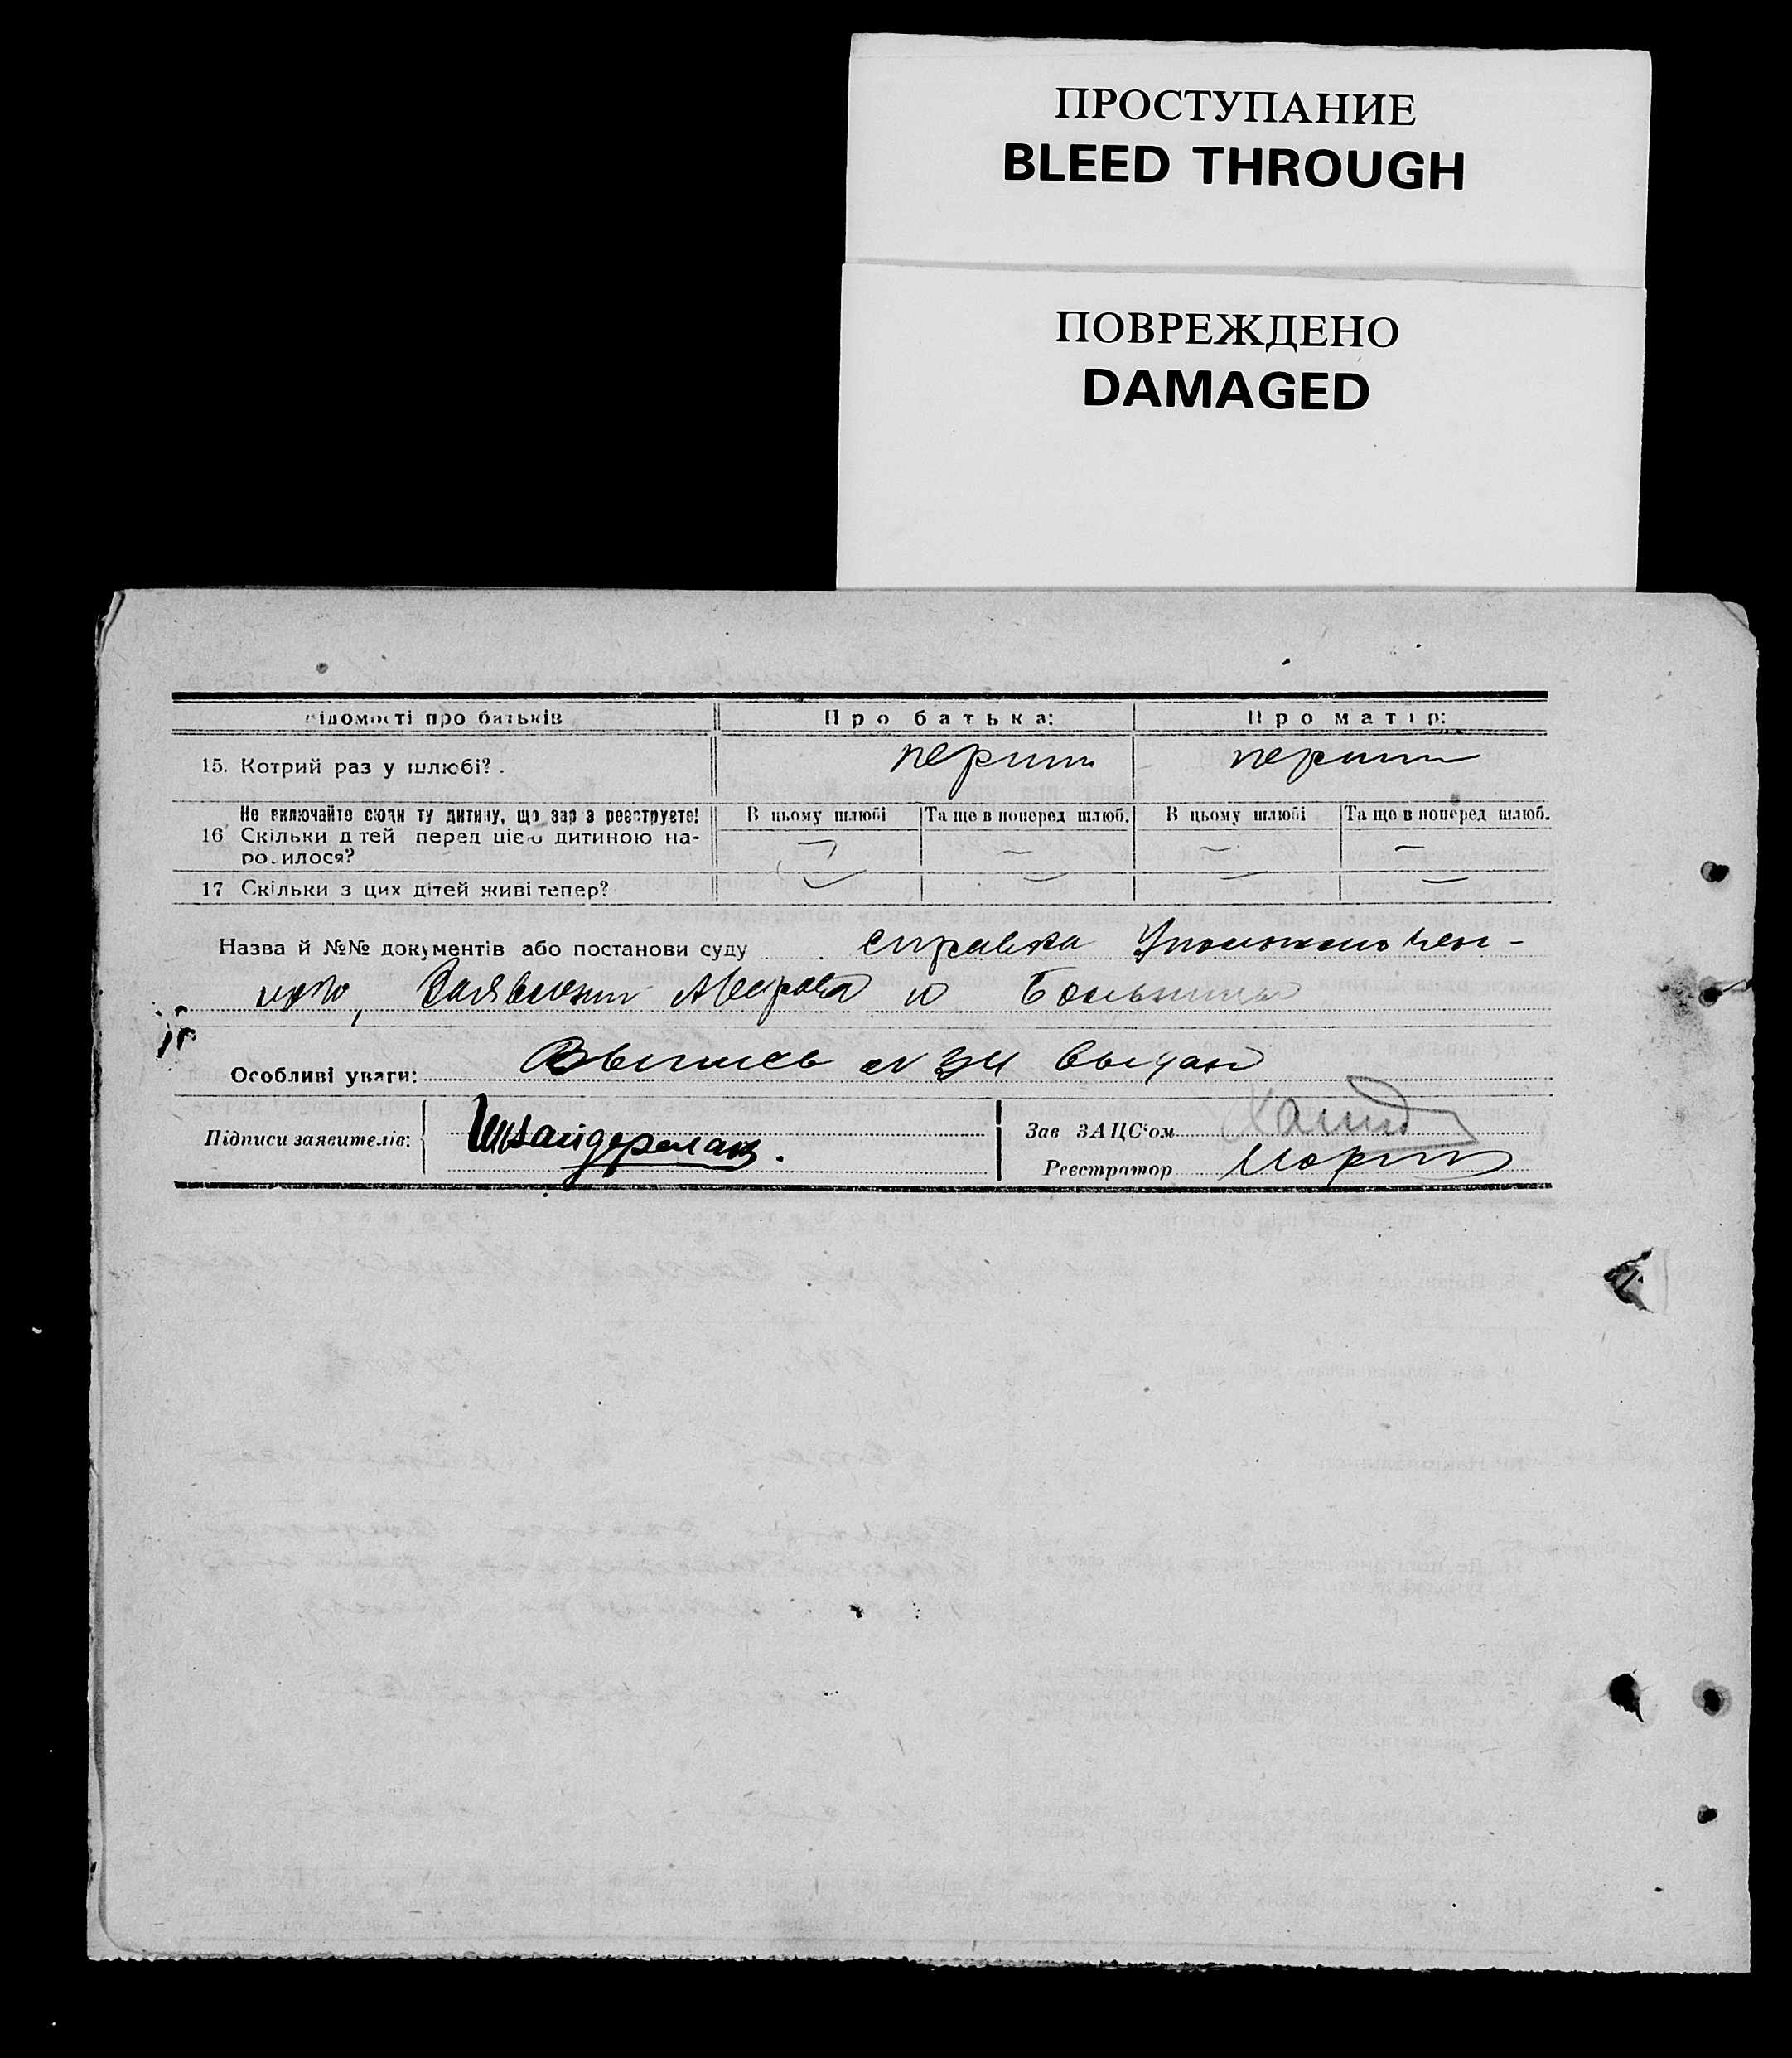 ПРОСТУПАНИЕ
BLEED THROUGH
ПОВРЕЖДЕНО
DAMAGED
відомості про батьків Про батька: Про матір:
15. Котрий раз у шлюбі?. перший перший
Не включайте сюди ту дитину, що зараз реєструєте! В цьому шлюбі Та ще в поперед шлюб. В цьому шлюбі Та ще в поперед шлюб.
16 Скільки дітей перед цією дитиною на- — — — —
родилося?
17 Скільки з цих дітей живі тепер? — — — —
Назва й №№ документів або постанови суду справка Уполномочен-
ного, и Больницы
Особливі уваги: Выпись выдан
Підписи заявителів:
Зав ЗАЦС'ом
Реєстратор